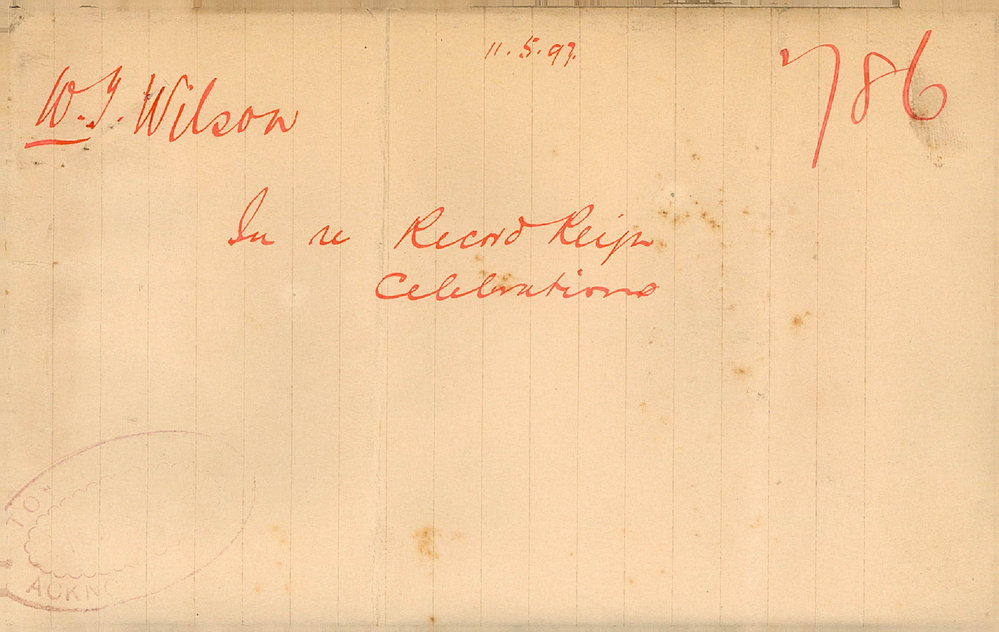 11.5.97.
786
W.J. Wilson
In re Record Reign
Celebrations
TO
ACKN